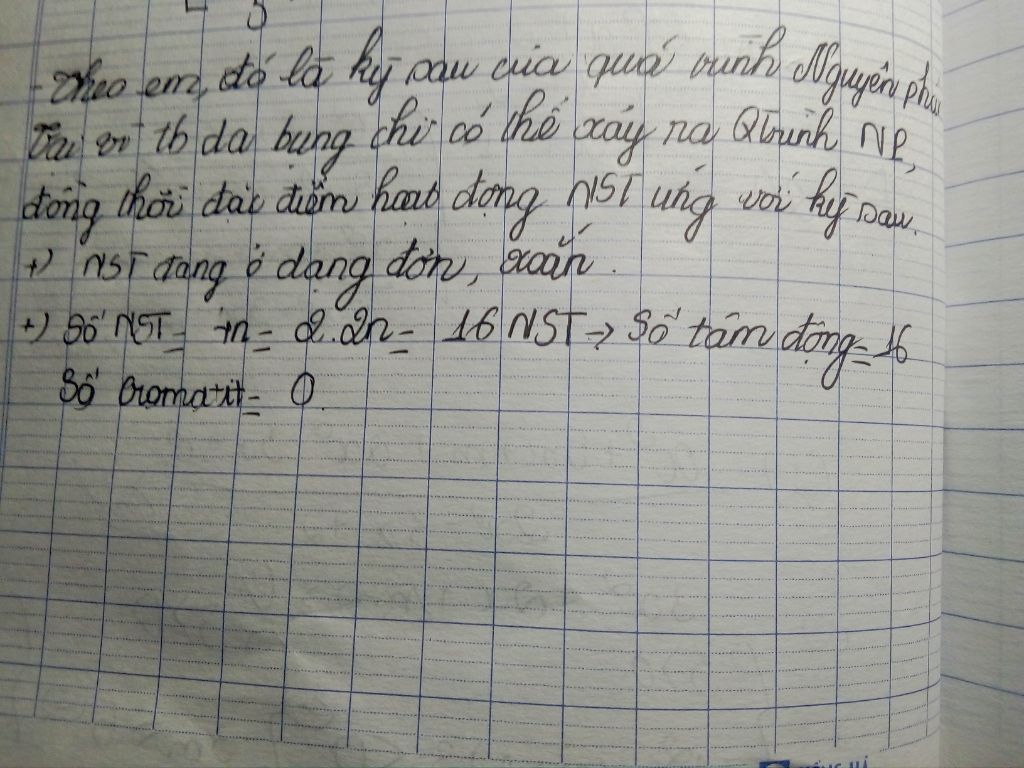 - Theo em, đó là kỳ sau của quá trình Nguyên phân
Tại vì tb da bụng chỉ có thể xảy ra Qtrình NP,
đồng thời đặc điểm hoạt động NST ứng với kỳ sau.
+) NST đang ở dạng đơn, xoắn.
+) Số NST = 4n = 2.2n = 16 NST → Số tâm động = 16
Số cromatit = 0.